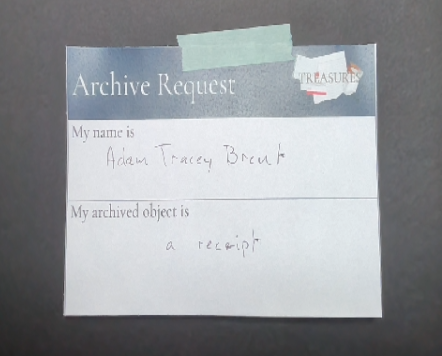 Archive Request
TREASURES
My name is
Adam Tracey Brent
My archived object is
a receipt